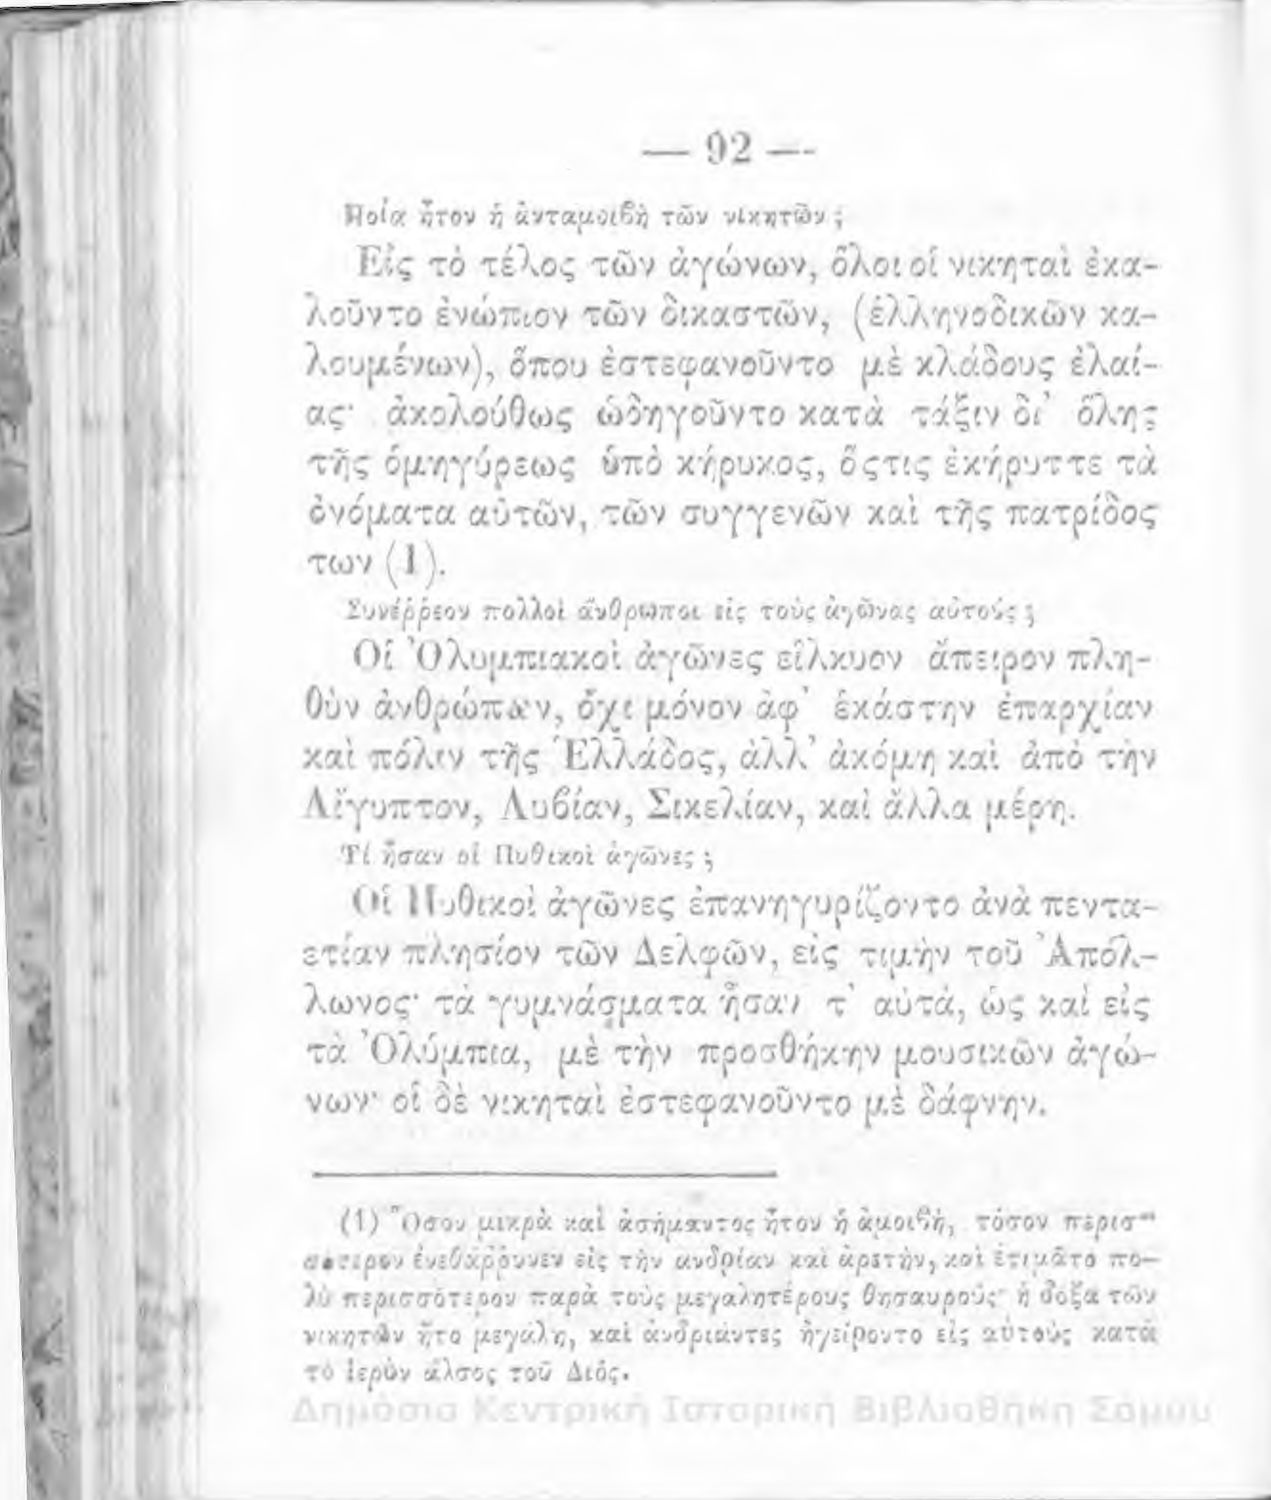 — 92 —
Ποία ἦτον ἡ ἀνταμοιβὴ τῶν νικητῶν ;
Εἰς τὸ τέλος τῶν ἀγώνων, ὅλοι οἱ νικηταὶ ἐκα-
λοῦντο ἐνώπιον τῶν δικαστῶν, (ἑλληνοδικῶν κα-
λουμένων), ὅπου ἐστεφανοῦντο μὲ κλάδους ἐλαί-
ας· ἀκολούθως ὡδηγοῦντο κατὰ τάξιν δι' ὅλης
τῆς ὁμηγύρεως ὑπὸ κήρυκος, ὅςτις ἐκήρυττε τὰ
ὀνόματα αὐτῶν, τῶν συγγενῶν καὶ τῆς πατρίδος
των (1).
Συνέῤῥεον πολλοὶ ἄνθρωποι εἰς τοὺς ἀγῶνας αὐτούς ;
Οἱ Ὀλυμπιακοὶ ἀγῶνες εἵλκυον ἄπειρον πλη-
θὺν ἀνθρώπων, ὄχι μόνον ἀφ' ἑκάστην ἐπαρχίαν
καὶ πόλιν τῆς Ἑλλάδος, ἀλλ' ἀκόμη καὶ ἀπὸ τὴν
Αἴγυπτον, Λυβίαν, Σικελίαν, καὶ ἄλλα μέρη.
Τί ἦσαν οἱ Πυθικοὶ ἀγῶνες ;
Οἱ Πυθικοὶ ἀγῶνες ἐπανηγυρίζοντο ἀνὰ πεντα-
ετίαν πλησίον τῶν Δελφῶν, εἰς τιμὴν τοῦ Ἀπόλ-
λωνος· τὰ γυμνάσματα ἦσαν τ' αὐτά, ὡς καὶ εἰς
τὰ Ὀλύμπια, μὲ τὴν προσθήκην μουσικῶν ἀγώ-
νων· οἱ δὲ νικηταὶ ἐστεφανοῦντο μὲ δάφνην.
(1) Ὅσον μικρὰ καὶ ἀσήμαντος ἦτον ἡ ἀμοιβή, τόσον περισ-
σότερον ἐνεθάῤῥυνεν εἰς τὴν ανδρίαν καὶ ἀρετήν, καὶ ἐτιμᾶτο πο-
λὺ περισσότερον παρὰ τοὺς μεγαλητέρους θησαυρούς· ἡ δόξα τῶν
νικητῶν ἦτο μεγάλη, καὶ ἀνδριάντες ἠγείροντο εἰς αὐτοὺς κατὰ
τὸ ἱερὸν ἄλσος τοῦ Διός.
Δημόσια Κεντρική Ιστορική Βιβλιοθήκη Σάμου